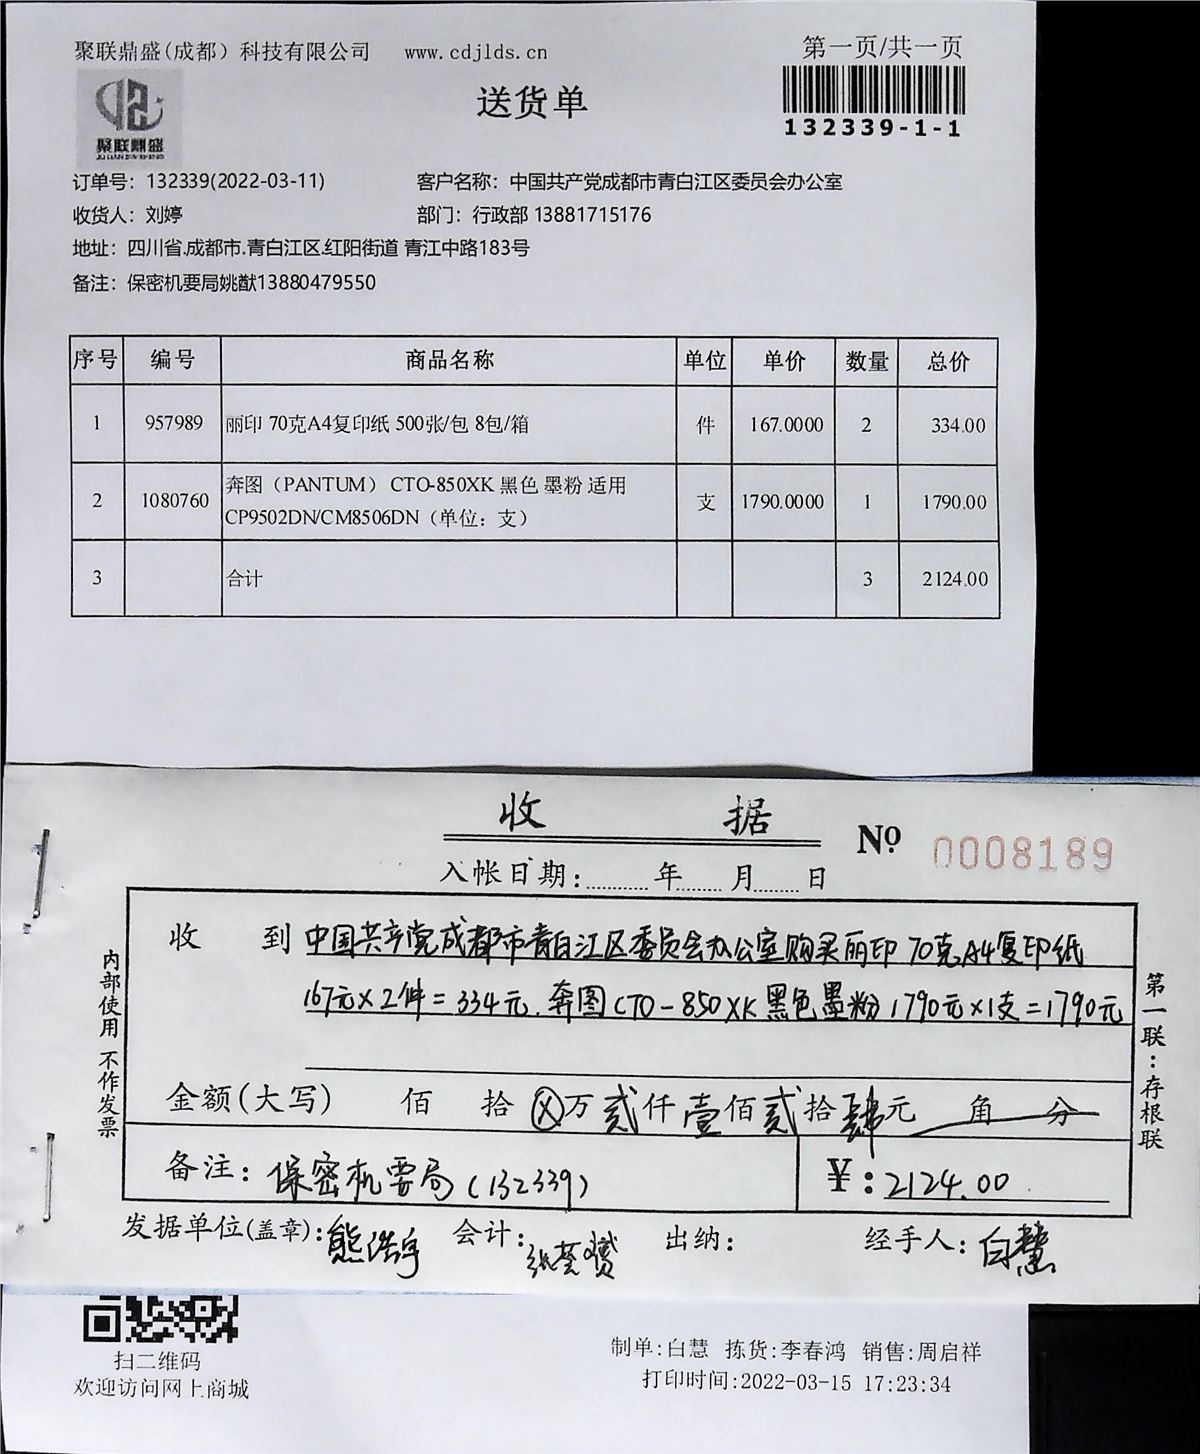 聚联鼎盛(成都）科技有限公司 www.cdjlds.cn
第一页/共一页
聚联鼎盛
送货单
132339-1-1
订单号：132339(2022-03-11) 客户名称：中国共产党成都市青白江区委员会办公室
收货人：刘婷 部门：行政部 13881715176
地址：四川省.成都市.青白江区.红阳街道 青江中路183号
备注：保密机要局姚猷13880479550
序号 编号 商品名称 单位 单价 数量 总价
1 957989 丽印 70克A4复印纸 500张/包 8包/箱 件 167.0000 2 334.00
2 1080760 奔图（PANTUM） CTO-850XK 黑色 墨粉 适用 支 1790.0000 1 1790.00
CP9502DN/CM8506DN（单位：支）
3 合计 3 2124.00
收 据
№ 0008189
入帐日期： 年 月 日
收 到 中国共产党成都市青白江区委员会办公室购买丽印 70克A4复印纸
167元×2件=334元. 奔图CTO-850XK黑色墨粉 1790元×1支=1790元
金额(大写) 佰 拾 ⊗万 贰仟 壹佰 贰拾 肆元 角 分
备注：保密机要局(132339)
¥：2124.00
发据单位(盖章)：熊浩宇 会计： 出纳： 经手人：白慧
内部使用 不作发票
第一联：存根联
扫二维码
欢迎访问网上商城
制单:白慧 拣货:李春鸿 销售:周启祥
打印时间:2022-03-15 17:23:34